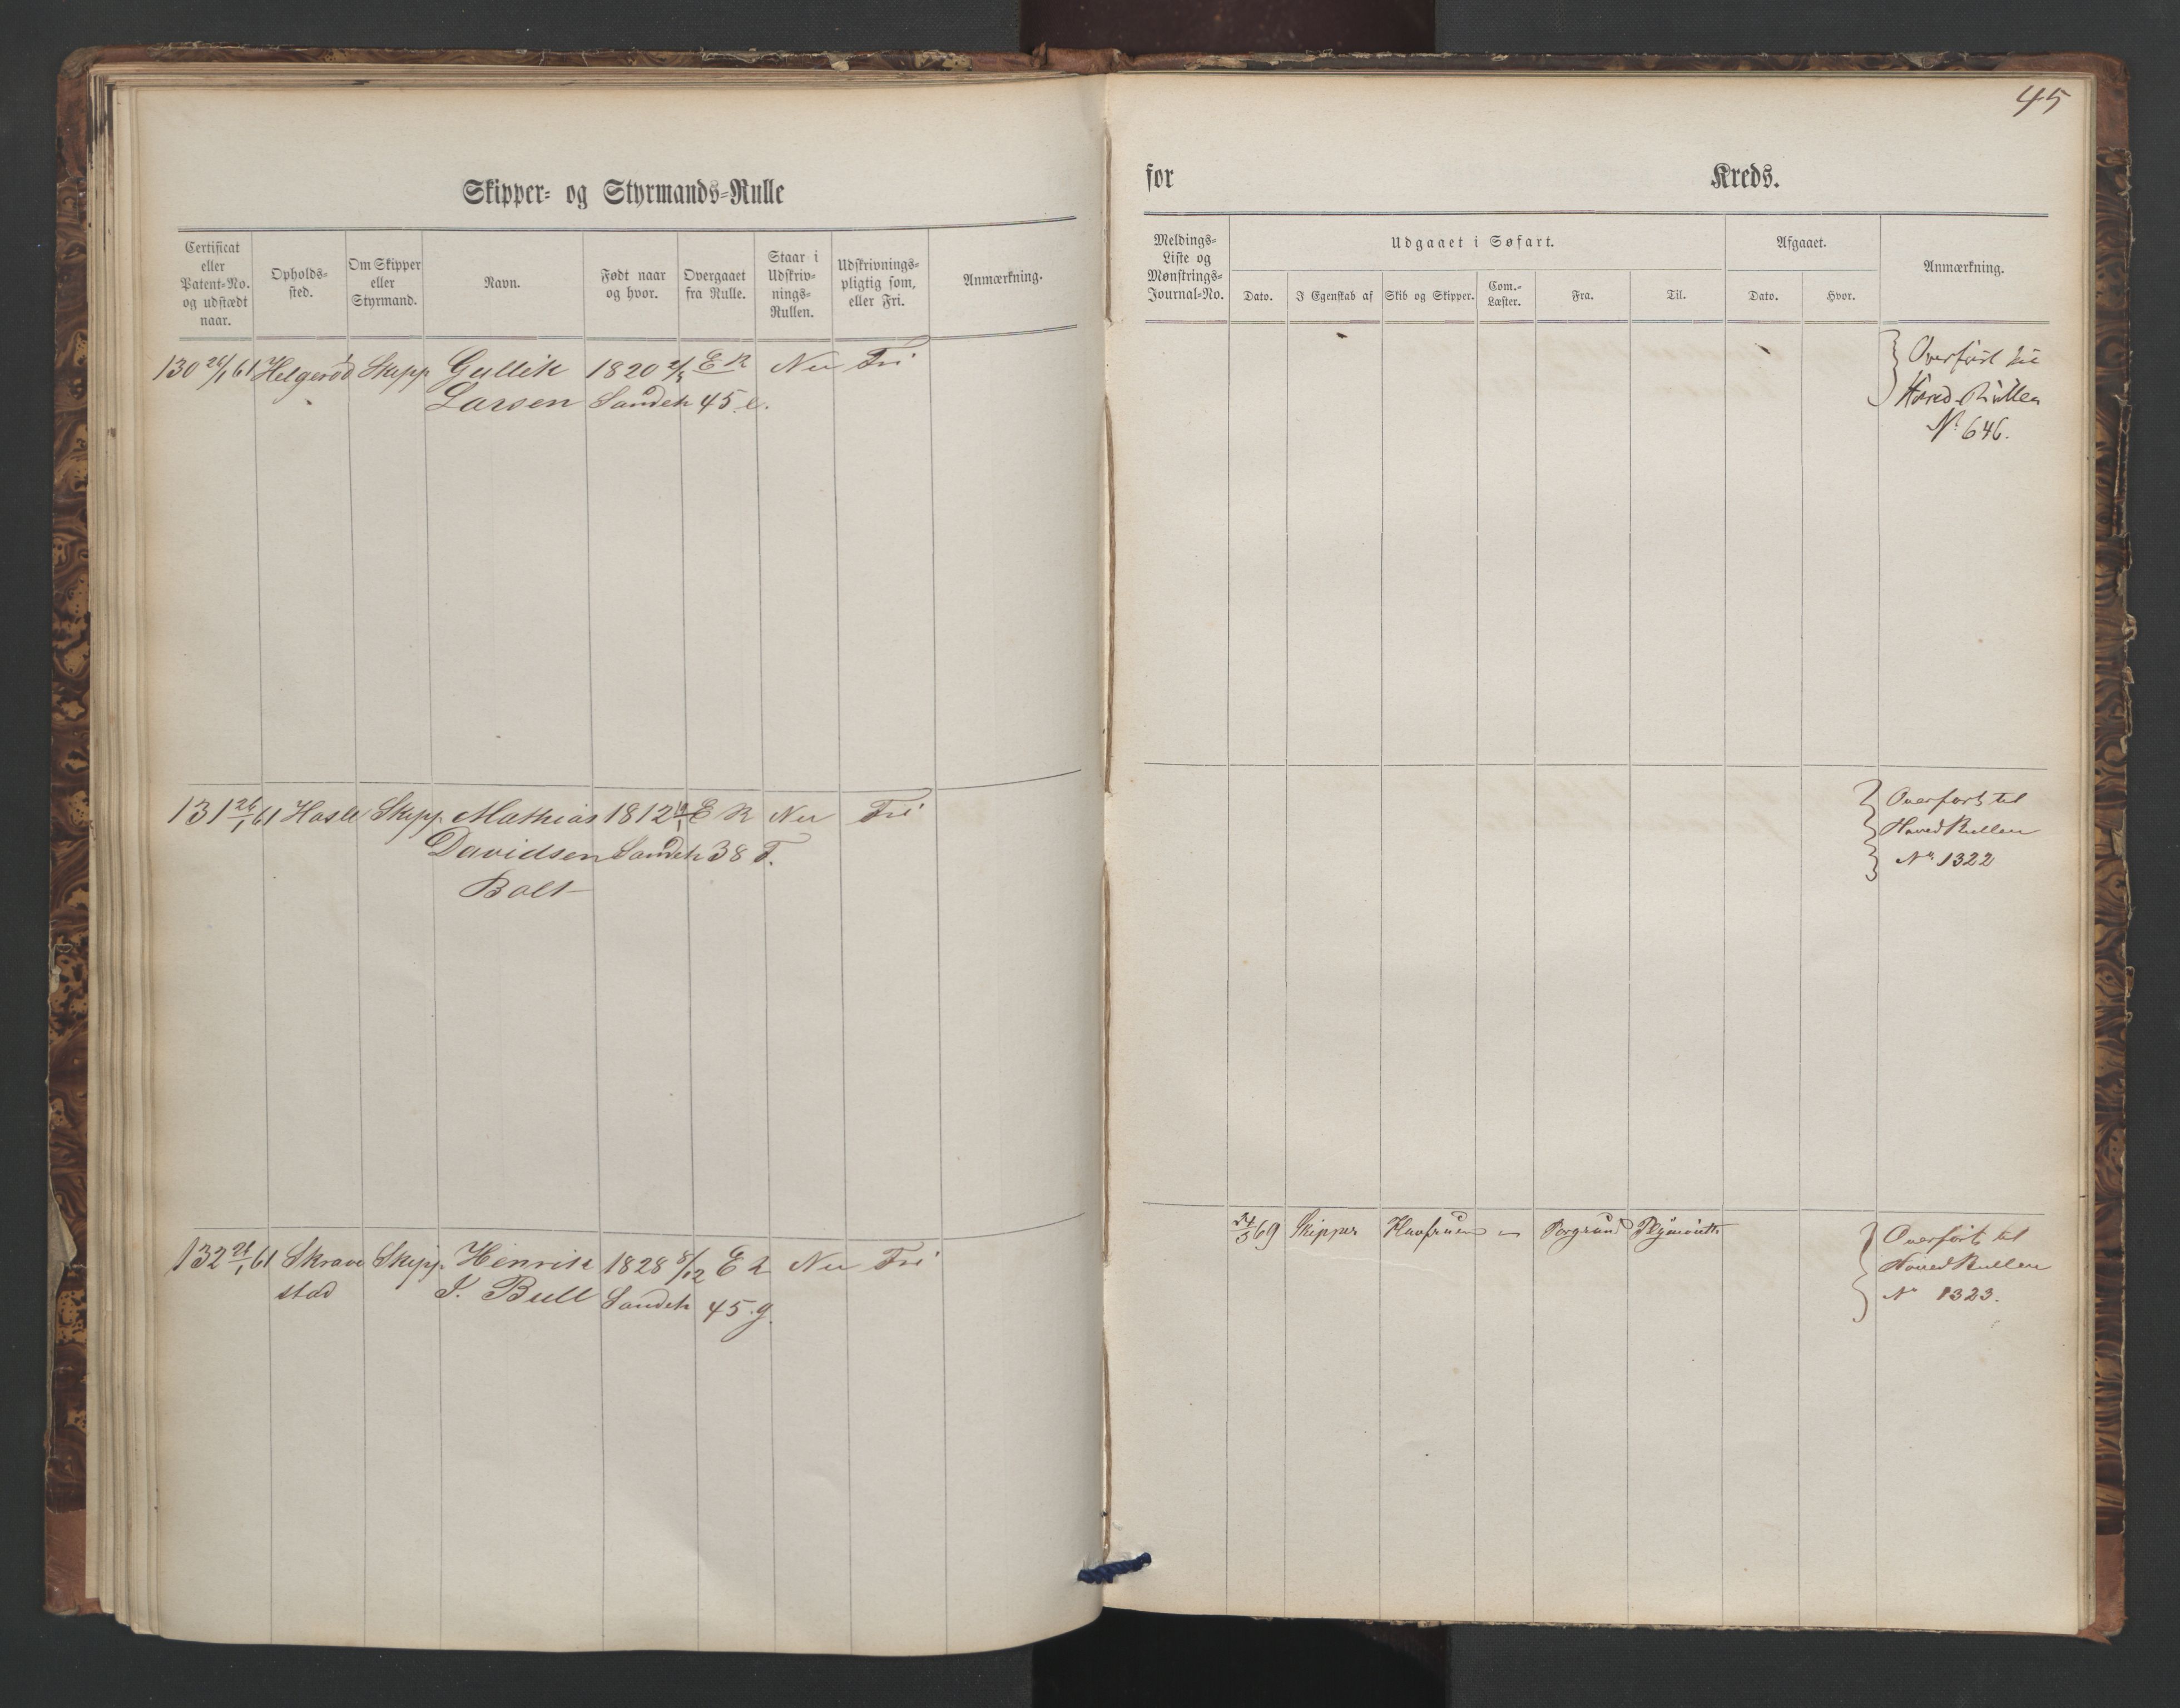 45
Skipper- og Styrmands-Rulle
for Kreds.
Certificat eller Patent-No. og udstædt naar.
Opholds-sted.
Om Skipper eller Styrmand.
Navn.
Født naar og hvor.
Overgaaet fra Rulle.
Staar i Udskriv-nings-Rullen.
Udskrivnings-pligtig som, eller Fri.
Anmærkning.
Meldings-Liste og Mønstrings-Journal-No.
Udgaaet i Søfart.
Dato.
I Egenskab af
Skib og Skipper.
Com.-Læster.
Fra.
Til.
Afgaaet.
Dato.
Hvor.
Anmærkning.
130 26/1 61 Helgerød Skipp Gullik 1820 2/3 E R Nei Fri
Larsen Sandeh 45. e.
Overført til
Hoved-Rullen
No 646.
131 26/1 61 Hasle Skipp. Mathias 1812 E R Nei Fri
Davidsen Sandeh 38 F.
Bolt
Overført til
HovedRullen
No 1322
132 26/1 61 Skrave Skipp. Henrik 1828 8/12 E R Nei Fri
stad J. Bull Sandeh 45. g.
24/3 69 Skipper Havfruen Porgrund Plymouth
Overført til
HovedRullen
No 1323.